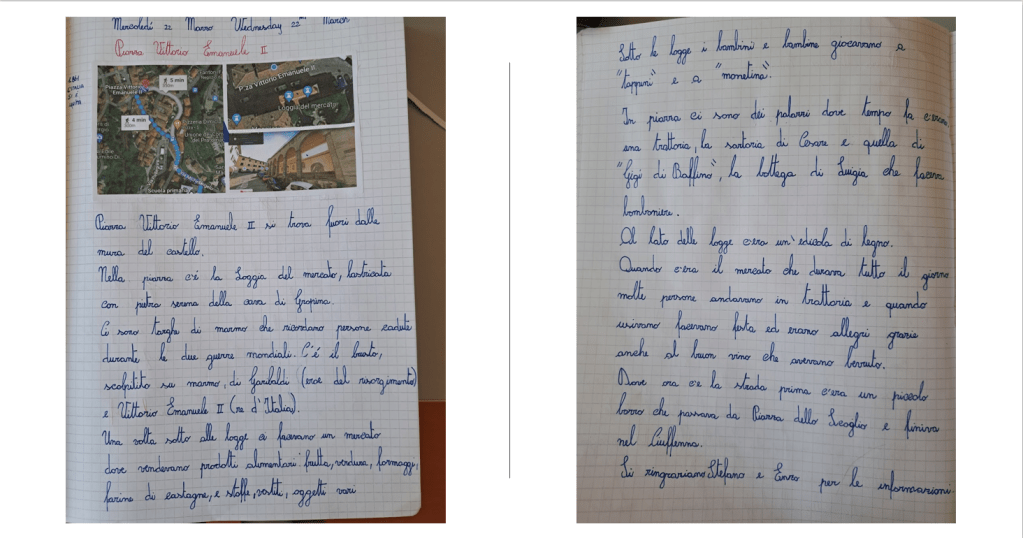 Mercoledì 22 Marzo Wednesday 22 March
Piazza Vittorio Emanuele II
5 min
Piazza Vittorio
Emanuele II
4 min
Scuola primaria
P.za Vittorio Emanuele II
Loggia del mercato
Piazza Vittorio Emanuele II si trova fuori dalle
mura del castello.
Nella piazza c'é la Loggia del mercato, lastricata
con pietra serena della cava di Gropina.
Ci sono targhe di marmo che ricordano persone cadute
durante le due guerre mondiali. C'é il busto,
scolpito su marmo, di Garibaldi (eroe del risorgimento)
e Vittorio Emanuele II (re d'Italia).
Una volta sotto alle logge ci facevano un mercato
dove vendevano prodotti alimentari frutta, verdura, formaggi,
farine di castagne, e stoffe, vestiti, oggetti vari
Sotto le logge i bambini e bambine giocavano a
"tappini" e a "monetina".
In piazza ci sono dei palazzi dove tempo fa c'erano
una trattoria, la sartoria di Cesare e quella di
"Gigi di Baffino", la bottega di Luigia che faceva
bomboniere.
Al lato delle logge c'era un'edicola di legno.
Quando c'era il mercato che durava tutto il giorno
molte persone andavano in trattoria e quando
uscivano facevano festa ed erano allegri grazie
anche al buon vino che avevano bevuto.
Dove ora c'e la strada prima c'era un piccolo
borro che passava da Piazza dello Scoglio e finiva
nel Ciuffenna.
Si ringraziano Stefano e Enzo per le informazioni